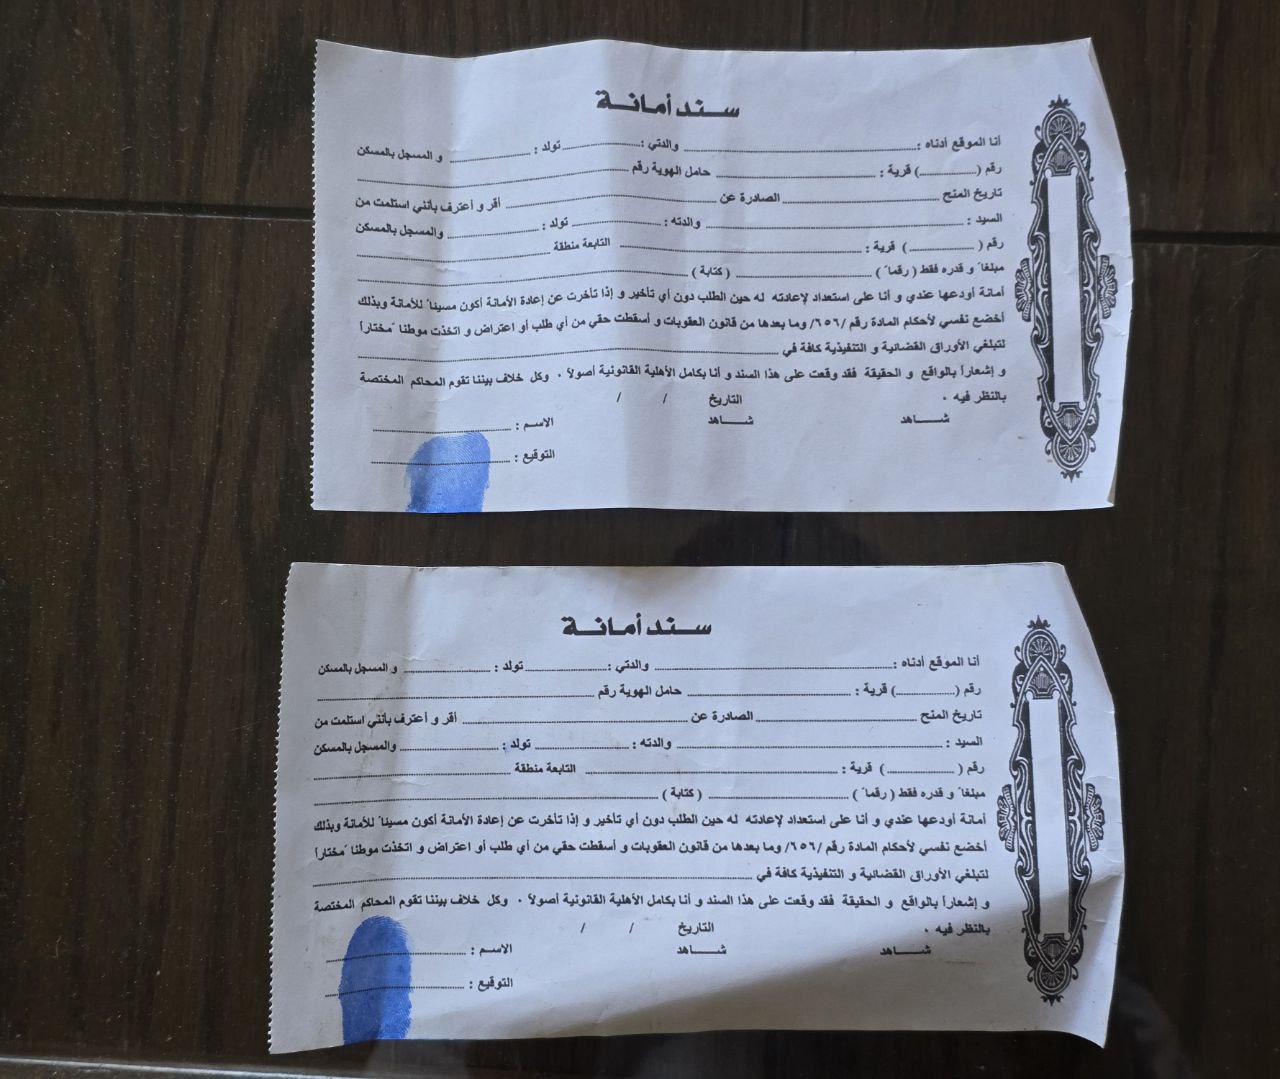 سند أمانة
أنا الموقع أدناه : ........ والدتي : ........ تولد : ........ و المسجل بالمسكن
رقم (........) قرية : ........ حامل الهوية رقم ........
تاريخ المنح ........ الصادرة عن ........ أقر و أعترف بأنني استلمت من
السيد : ........ والدته : ........ تولد : ........ والمسجل بالمسكن
رقم (........) قرية : ........ التابعة منطقة ........
مبلغاً و قدره فقط ( رقماً ) ........ ( كتابة ) ........
أمانة أودعها عندي و أنا على استعداد لإعادته له حين الطلب دون أي تأخير و إذا تأخرت عن إعادة الأمانة أكون مسيئاً للأمانة وبذلك
أخضع نفسي لأحكام المادة رقم /٦٥٦/ وما بعدها من قانون العقوبات و أسقطت حقي من أي طلب أو اعتراض و اتخذت موطناً مختاراً
لتبلغي الأوراق القضائية و التنفيذية كافة في ........
و إشعاراً بالواقع و الحقيقة فقد وقعت على هذا السند و أنا بكامل الأهلية القانونية أصولاً . وكل خلاف بيننا تقوم المحاكم المختصة
بالنظر فيه . التاريخ / /
شاهد شاهد الاسم : ........
التوقيع : ........
سند أمانة
أنا الموقع أدناه : ........ والدتي : ........ تولد : ........ و المسجل بالمسكن
رقم (........) قرية : ........ حامل الهوية رقم ........
تاريخ المنح ........ الصادرة عن ........ أقر و أعترف بأنني استلمت من
السيد : ........ والدته : ........ تولد : ........ والمسجل بالمسكن
رقم (........) قرية : ........ التابعة منطقة ........
مبلغاً و قدره فقط ( رقماً ) ........ ( كتابة ) ........
أمانة أودعها عندي و أنا على استعداد لإعادته له حين الطلب دون أي تأخير و إذا تأخرت عن إعادة الأمانة أكون مسيئاً للأمانة وبذلك
أخضع نفسي لأحكام المادة رقم /٦٥٦/ وما بعدها من قانون العقوبات و أسقطت حقي من أي طلب أو اعتراض و اتخذت موطناً مختاراً
لتبلغي الأوراق القضائية و التنفيذية كافة في ........
و إشعاراً بالواقع و الحقيقة فقد وقعت على هذا السند و أنا بكامل الأهلية القانونية أصولاً . وكل خلاف بيننا تقوم المحاكم المختصة
بالنظر فيه . التاريخ / /
شاهد شاهد الاسم : ........
التوقيع : ........